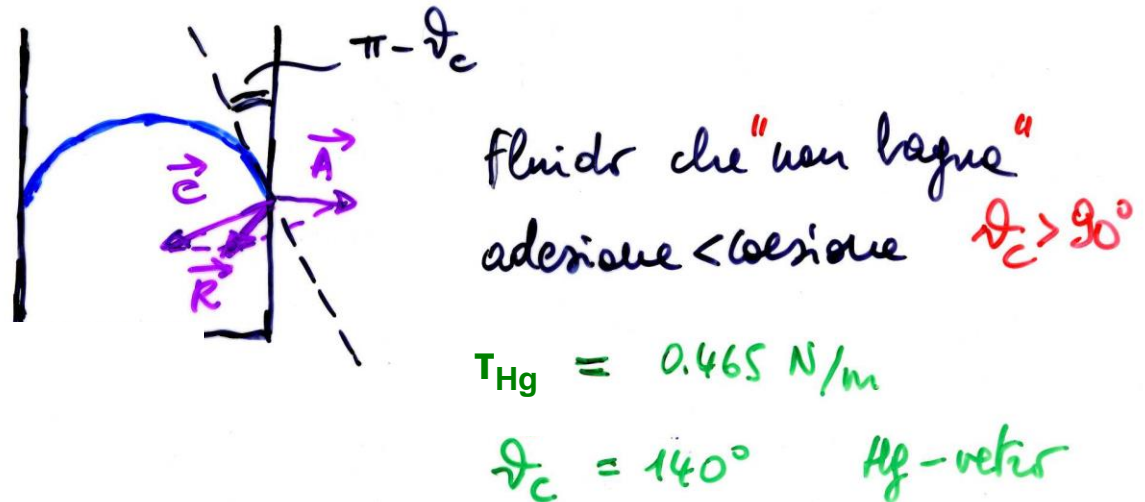 π - ϑc
C
A
R
fluido che "non bagna"
adesione < coesione ϑc > 90°
τHg = 0.465 N/m
ϑc = 140° Hg - vetro